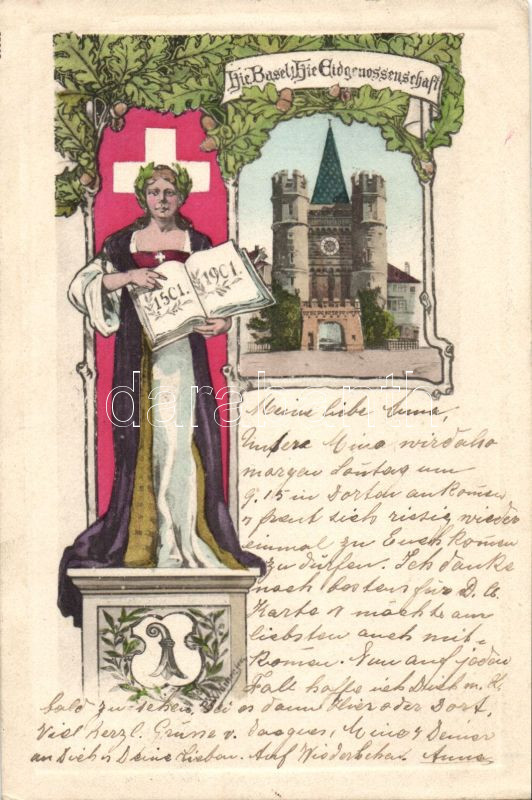 Hie Basel! Hie Eidgenossenschaft
15C1.
19C1.
darabanth
Meine liebe Anna,
Unsere Mina wird also
morgen Sontag um
9.15 in Dortan ankomen
& freut sich riesig wieder
einmal zu Euch komen
zu dürfen. Ich danke
noch bestens für D. lb.
Karte & möchte am
liebsten auch mit-
komen. Nun auf jeden
Fall hoffe ich Dich m. 
bald zu sehen, sei es dann Hier oder Dort.
Viel herzl. Grüsse v. Jacques, Mina & Deiner
an Dich & Deine Lieben. Auf Wiedersehen. Anna